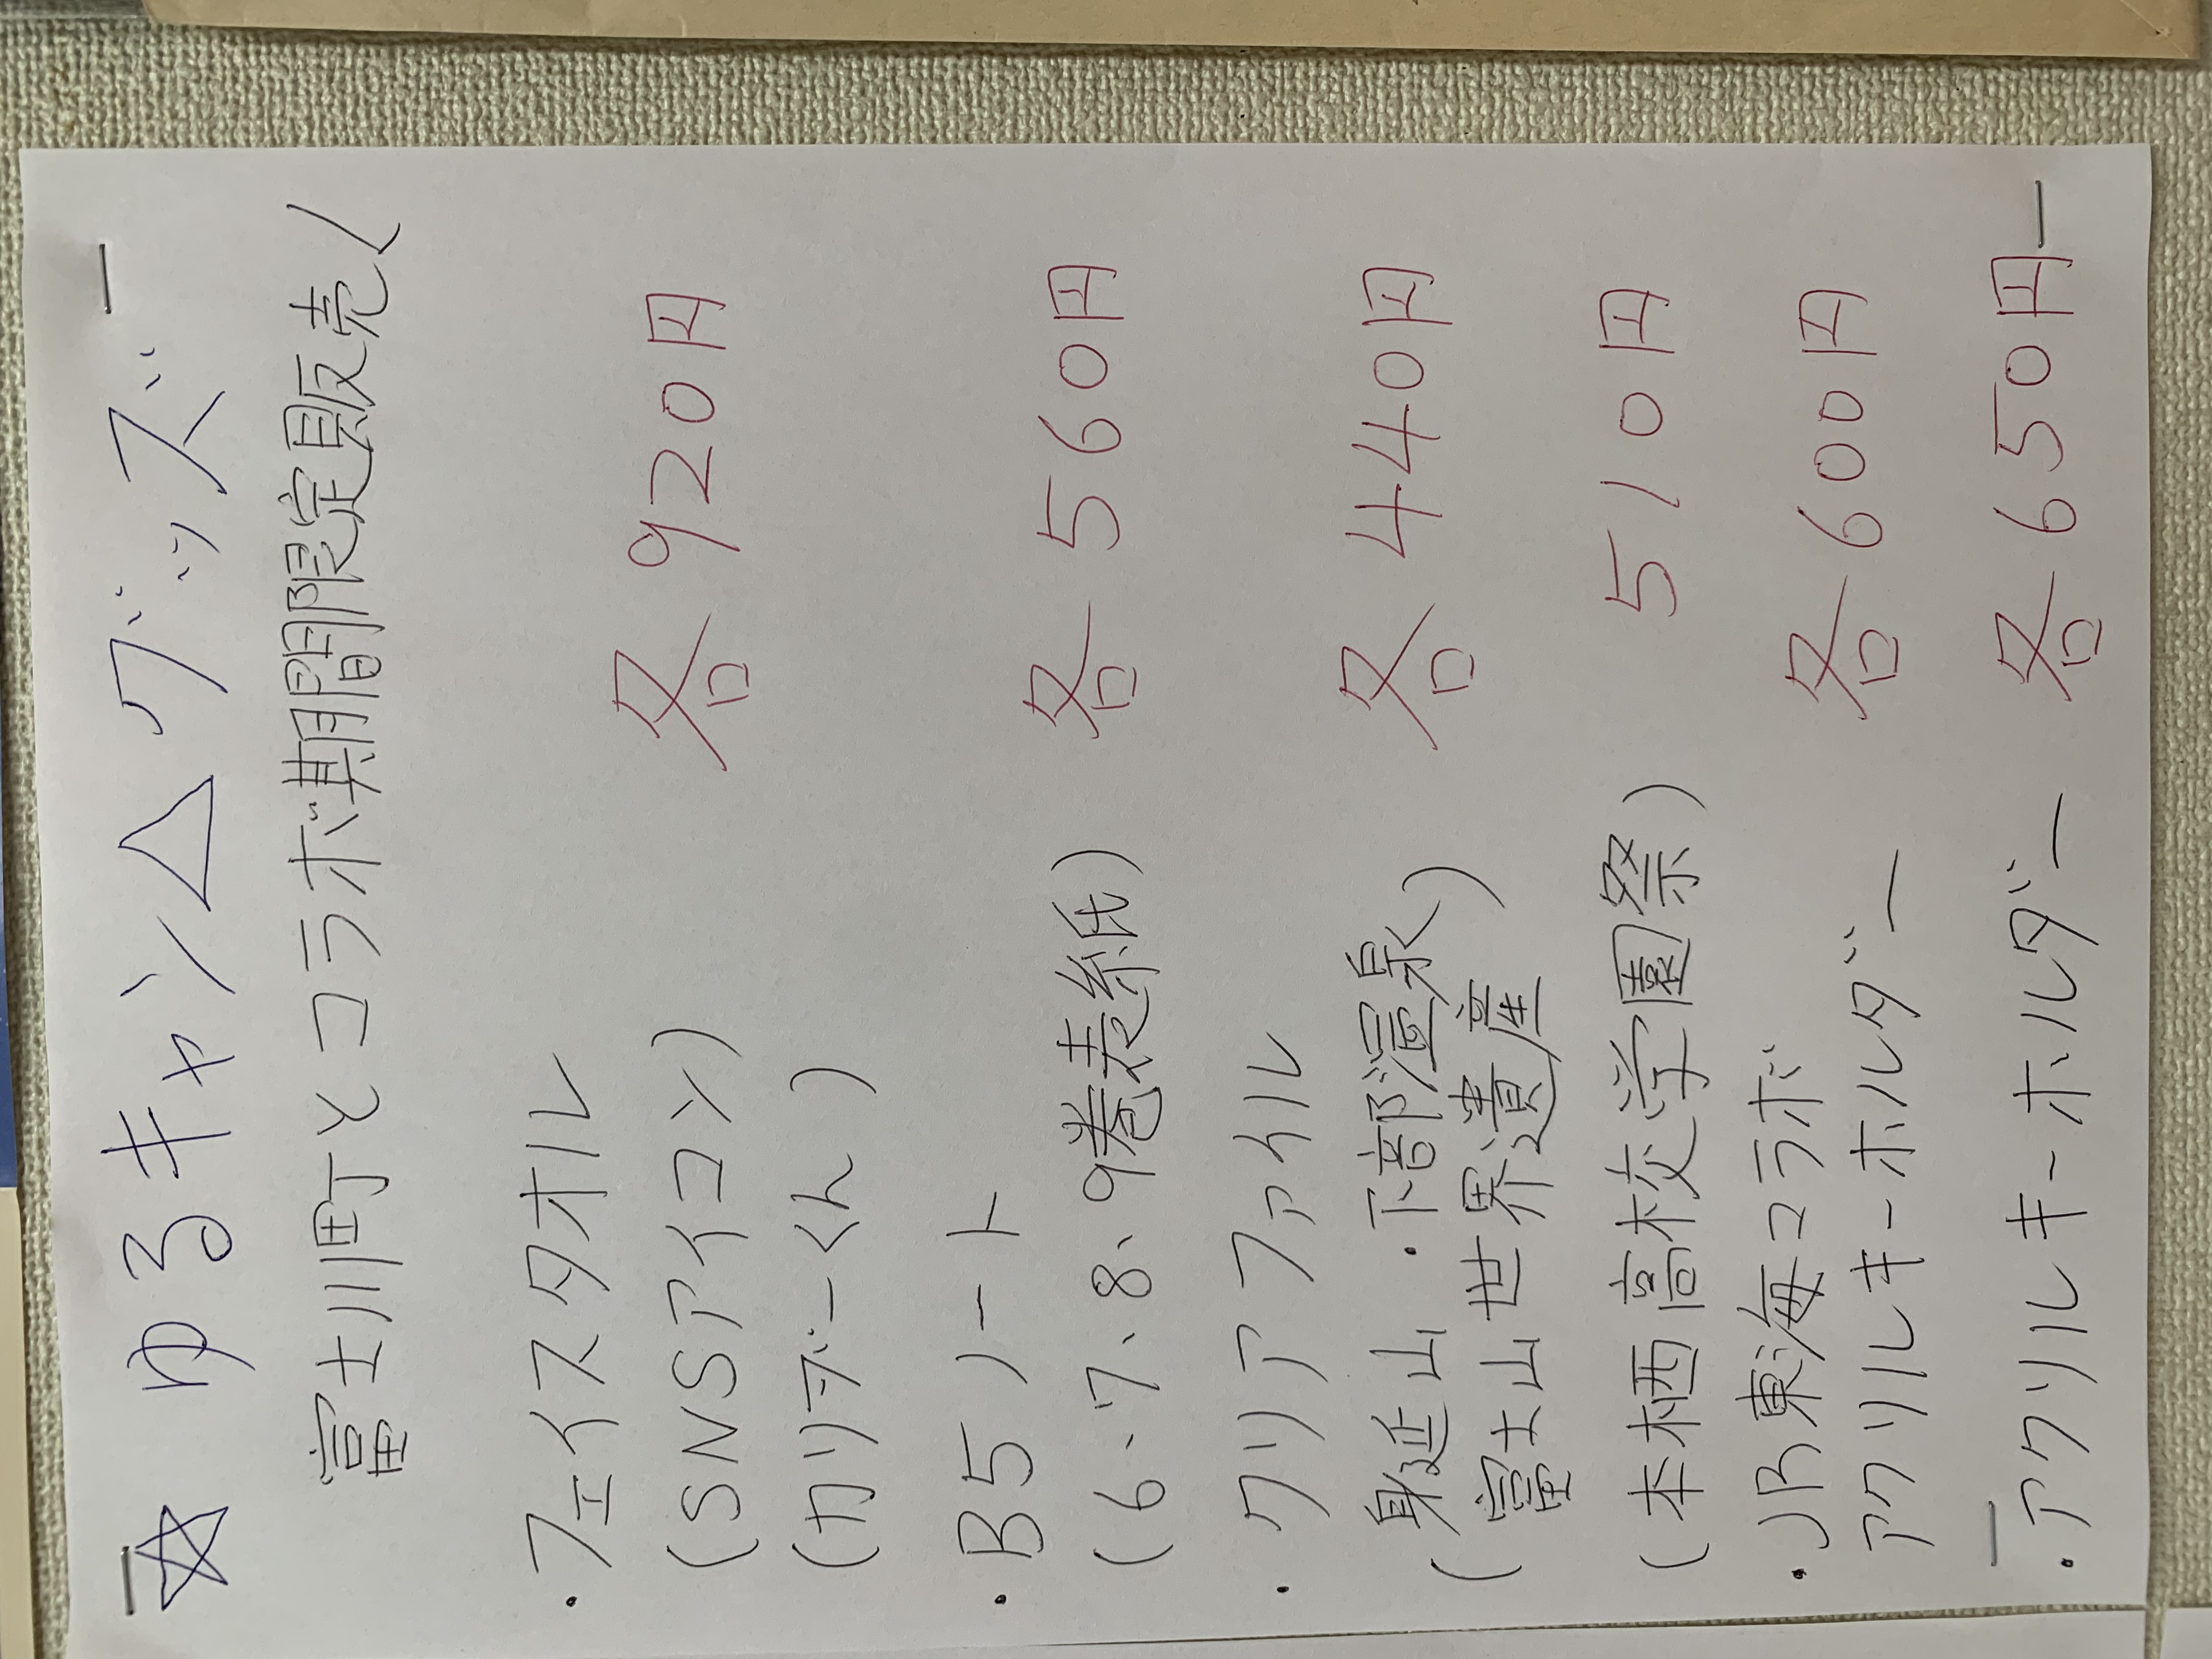 ☆ ゆるキャン△グッズ
富士川町とコラボ期間限定販売!
・フェイスタオル
(SNSアイコン) 各920円
(カリブーくん)
・B5ノート
(6、7、8、9巻表紙) 各560円
・クリアファイル
(身延山・下部温泉
富士山世界遺産) 各440円
(本栖高校学園祭) 510円
・JR東海コラボ
アクリルキーホルダー 各600円
・アクリルキーホルダー 各650円